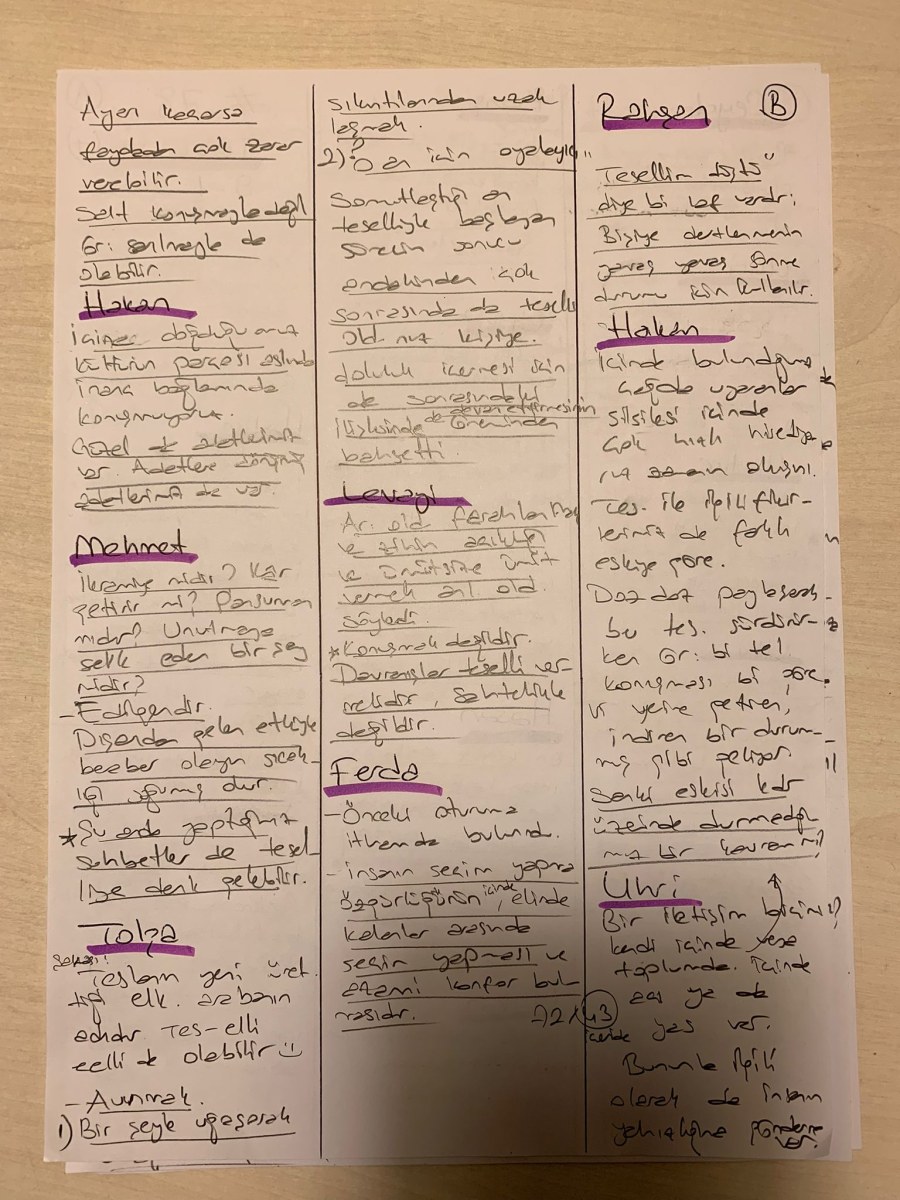 Ayarı kaçarsa
faydadan çok zarar
verebilir.
Salt konuşmayla değil
Ör: sarılmayla da
olabilir.
Hakan
İçine doğduğumuz
kültürün parçası aslında
inanç bağlamında
konuşmuyoruz.
Güzel adetlerimiz
var. Adetlere dönüşmüş
adetlerimiz de var.
Mehmet
İkramiye midir? Kâr
getirir mi? Pansuman
mıdır? Unutmaya
sevk eden bir şey
midir?
- Edilgendir.
Dışarıdan gelen etkiyle
beraber oluşan sıcak-
lığı yoğunluğudur.
* Şu anda yaptığımız
sohbetler de tesel-
liye denk gelebilir.
Tolga
Şakası!
Tesla'nın yeni üret-
tiği elk. arabanın
adıdır Tes-elli
eelli de olabilir :)
- Avunmak.
1) Bir şeyle uğraşarak
sıkıntılarından uzak-
laşmak.
2) "O an için oyalayıcı"
Somutlaştığı an
teselliyle başlayan
sürecin sonucu
andakinden çok
sonrasında da teselli
old. muz kişiye.
doluluk içermesi için
de sonrasındaki
de devam ettirmesinin
ilişkisinde öneminden
bahsetti.
Levayi
Ar. old. ferahlanma
ve zihin açıklığı
ve ümitsize ümit
vermek anl. old.
söyledi.
* Konuşmak değildir.
Davranışlar teselli ver-
melidir, sahtelikle
değildir.
Ferda
- Önceki oturuma
ithamda bulundu.
- insanın seçim yapma
özgürlüğünün içinde, elinde
kalanlar arasında
seçim yapması ve
azami konfor bul-
masıdır.
B
"Tesellim düştü"
diye bi laf vardır;
Bişiye dertlenmenin
yavaş yavaş sönme
durumu için kullanılır.
Hakan
İçinde bulunduğumuz
çağda uyaranlar
silsilesi içinde
çok hızlı hissediyo-
ruz zaman akışını.
Tes. ile ilgili fikir-
lerimiz de farklı
eskiye göre.
Doz doz paylaşarak
bu tes. sürdürür-
ken Ör: bi tel.
konuşması bi göre-
vi yerine getiren,
indiren bir durum-
muş gibi geliyor.
Sanki eskisi kdr
üzerinde durmadığı-
mız bir kavram mı?
Uhri
Bir iletişim biçimi?
kendi içinde veya
toplumda. İçinde
yas ver.
Bununla ilgili
olarak da insan
yalnızlığına gönderme
var.